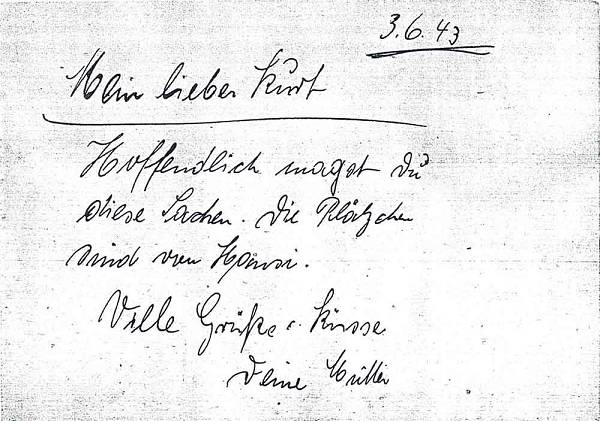 3.6.43
Mein lieber Kurt
Hoffendlich magst du
diese Sachen. Die Plätzchen
sind von Hansi.
Viele Grüße u. Küsse
Deine Mutter